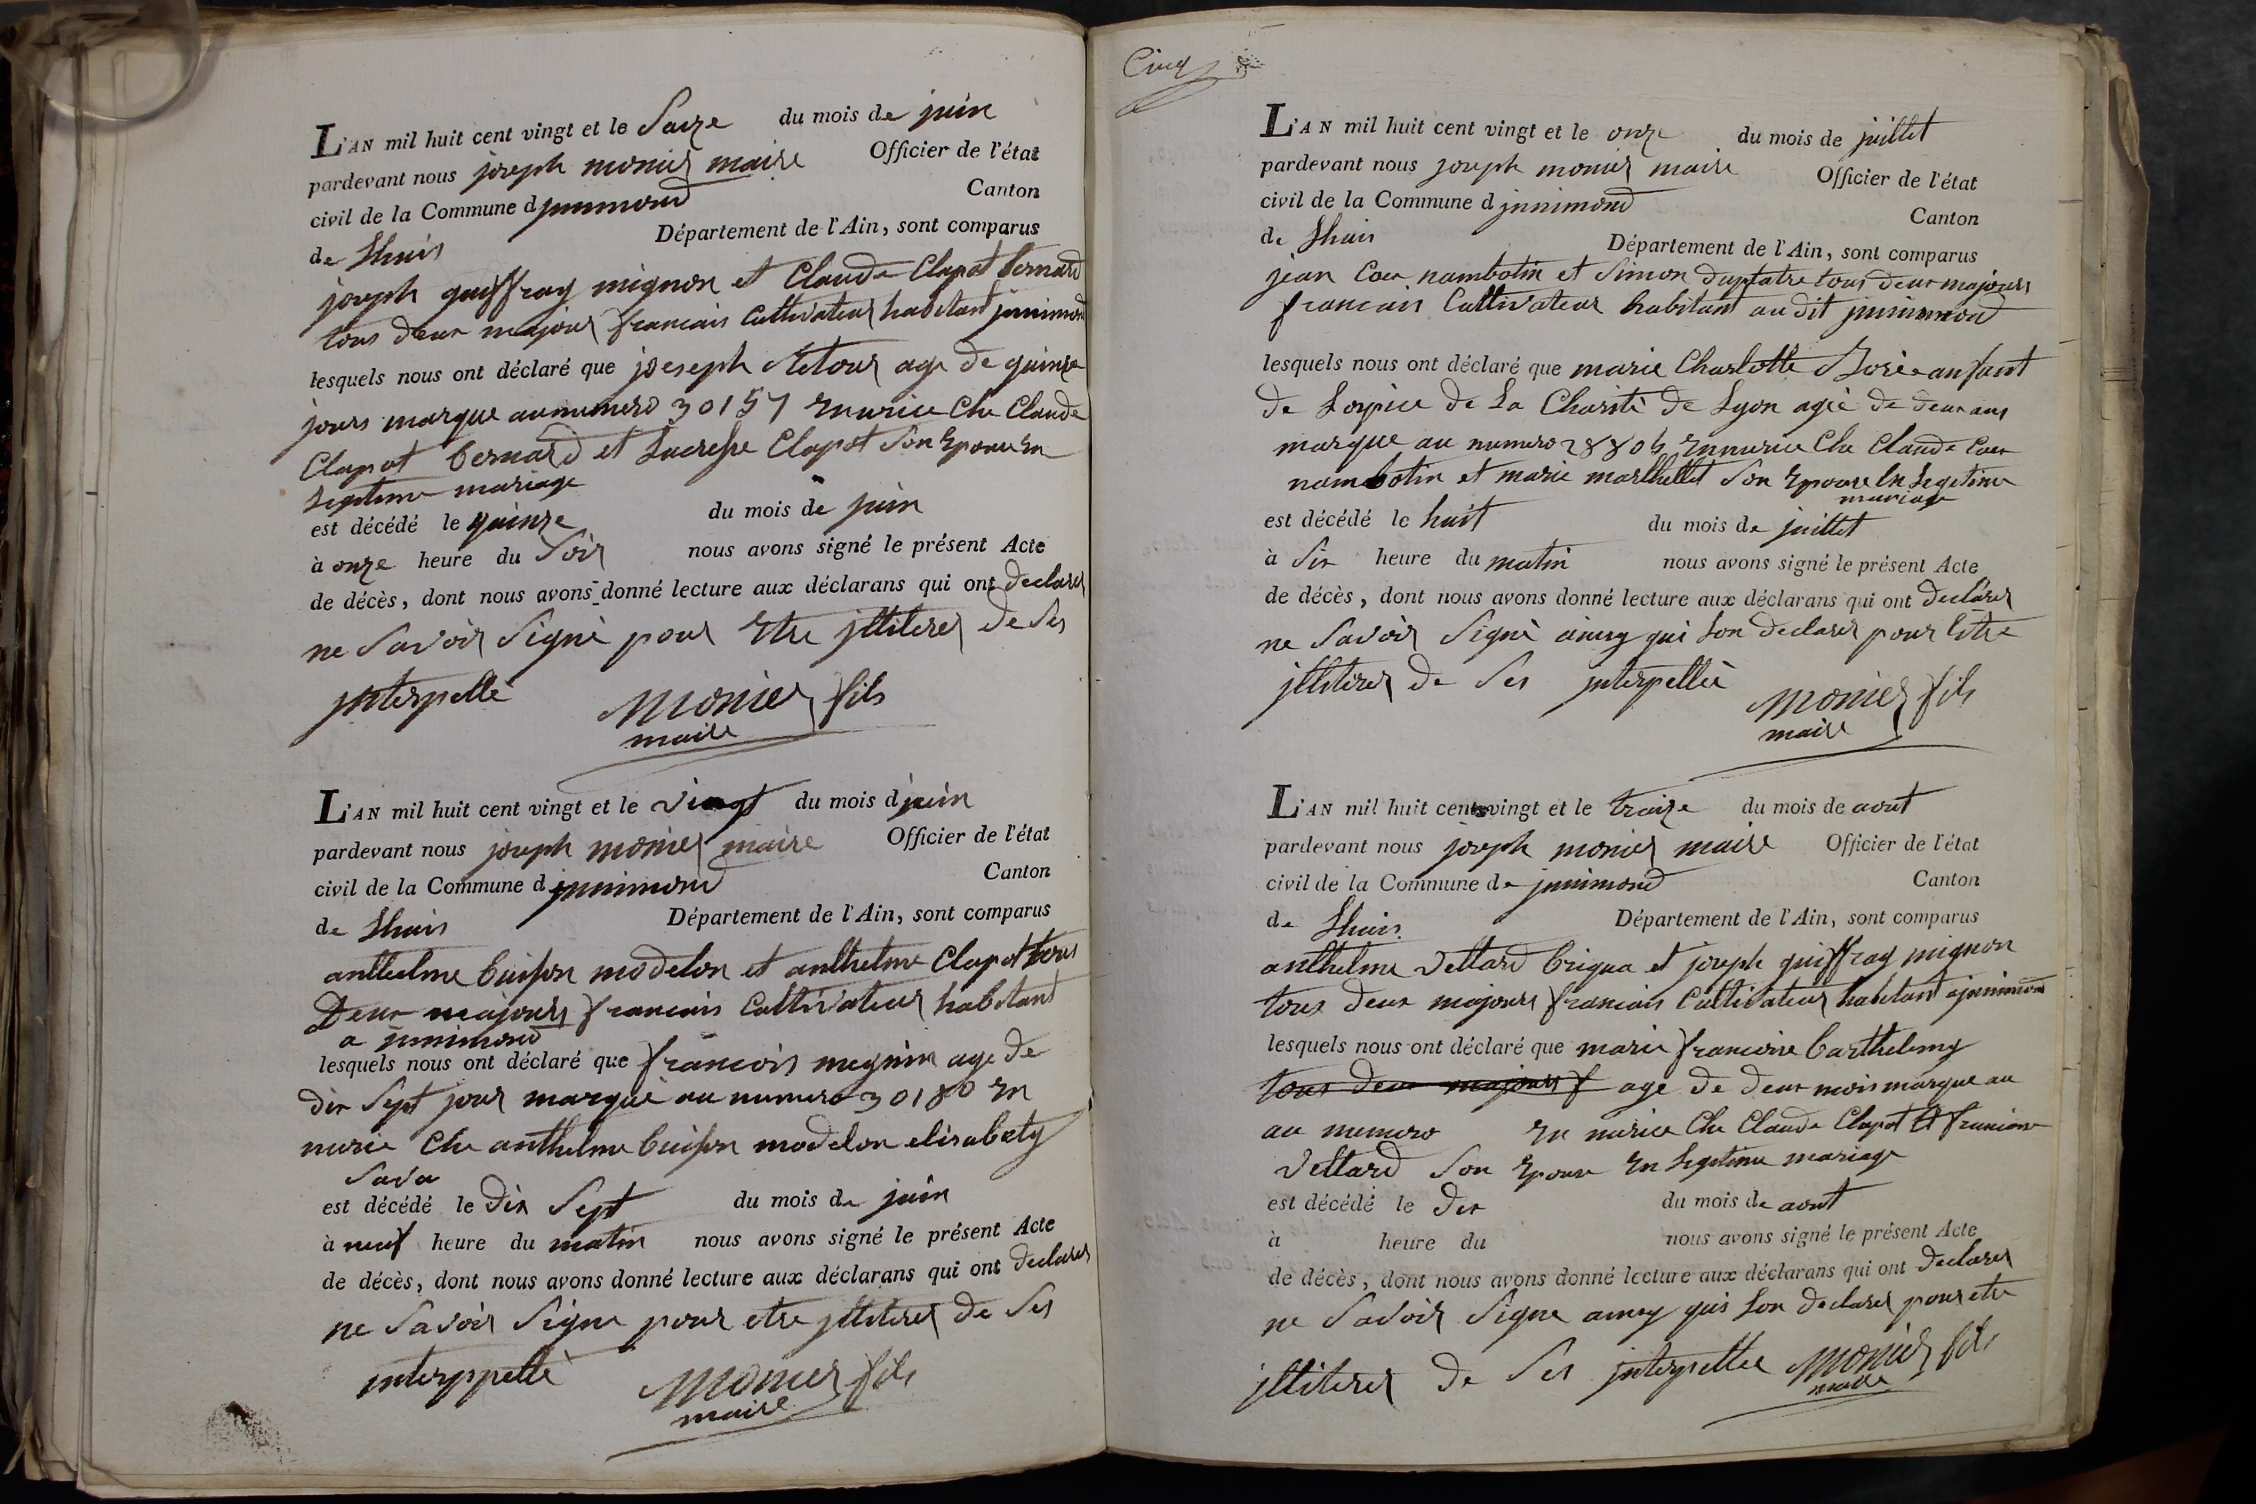 L'AN mil huit cent vingt et le Saize du mois de juin
pardevant nous joseph monier maire Officier de l'état
civil de la Commune d jnnimond Canton
de Lhuis Département de l'Ain, sont comparus
joseph guiffray mignon et Claude Clapot bernard
tous deux majeur francais Cultivateur habitant jnnimond
lesquels nous ont déclaré que joseph age de quinze
jours marque au numero 30157 Che Claude
Clapot bernard et Lucresse Clapot Son Epouse En
Legitime mariage
est décédé le quinze du mois de juin
à onze heure du Soir nous avons signé le présent Acte
de décès, dont nous avons donné lecture aux déclarans qui ont declarer
ne Savoir Signé pour Etre jlliterer de Ses
jnterpellé Monier fils
maire
L'AN mil huit cent vingt et le vingt du mois d juin
pardevant nous joseph monier maire Officier de l'état
civil de la Commune d jnnimond Canton
de Lhuis Département de l'Ain, sont comparus
anthelme buisson modelon et anthelme Clapot tous
Deux majeurs francais Cultivateur habitant
a jnnimond
lesquels nous ont déclaré que francois age de
dix Sept jour marqué au numero 30180 En
nurice Che anthelme buisson modelon elisabety
Sava
est décédé le Dix Sept du mois de juin
à neuf heure du matin nous avons signé le présent Acte
de décès, dont nous avons donné lecture aux déclarans qui ont declarer
ne Savoir Signe pour etre jlliterer de Ses
interppellé Monier fils
maire
Cinq
L'AN mil huit cent vingt et le onze du mois de juillet
pardevant nous joseph monier maire Officier de l'état
civil de la Commune d jnnimond Canton
de Lhuis Département de l'Ain, sont comparus
jean Coer nambotin et Simon tous deux majeurs
francais Cultivateur habitant au dit jnnimond
lesquels nous ont déclaré que marie Charlotte anfant
de Lospice de La Charité de Lyon agée de deux ans
marque au numero Che Claude Coer
nambotin et marie marthellet Son Epouse En Legitime
mariage
est décédé le huit du mois de juillet
à Six heure du matin nous avons signé le présent Acte
de décès, dont nous avons donné lecture aux déclarans qui ont declarer
ne Savoir Signé ainsy qui Lon declarer pour Etre
jlliterer de Ses jnterpellée Monier fils
maire
L'AN mil huit cent vingt et le traize du mois de aout
pardevant nous joseph monier maire Officier de l'état
civil de la Commune de jnnimond Canton
de Lhuis Département de l'Ain, sont comparus
anthelme vettard briqua et joseph guiffray mignon
tous deux majeurs francais Cultivateur habitant a jnnimond
lesquels nous ont déclaré que marie francoise barthelemy
tous deux majeurs f age de deux mois marque au
au numero En nurice Che Claude Clapot Et francoise
vettard Son Epouse En Legitime mariage
est décédé le dix du mois de aout
à heure du nous avons signé le présent Acte
de décès, dont nous avons donné lecture aux déclarans qui ont declarer
ne Savoir Signe ainsy quis Lon declarer pour etre
jlliterer de Ses jnterpellée Monier fils
maire